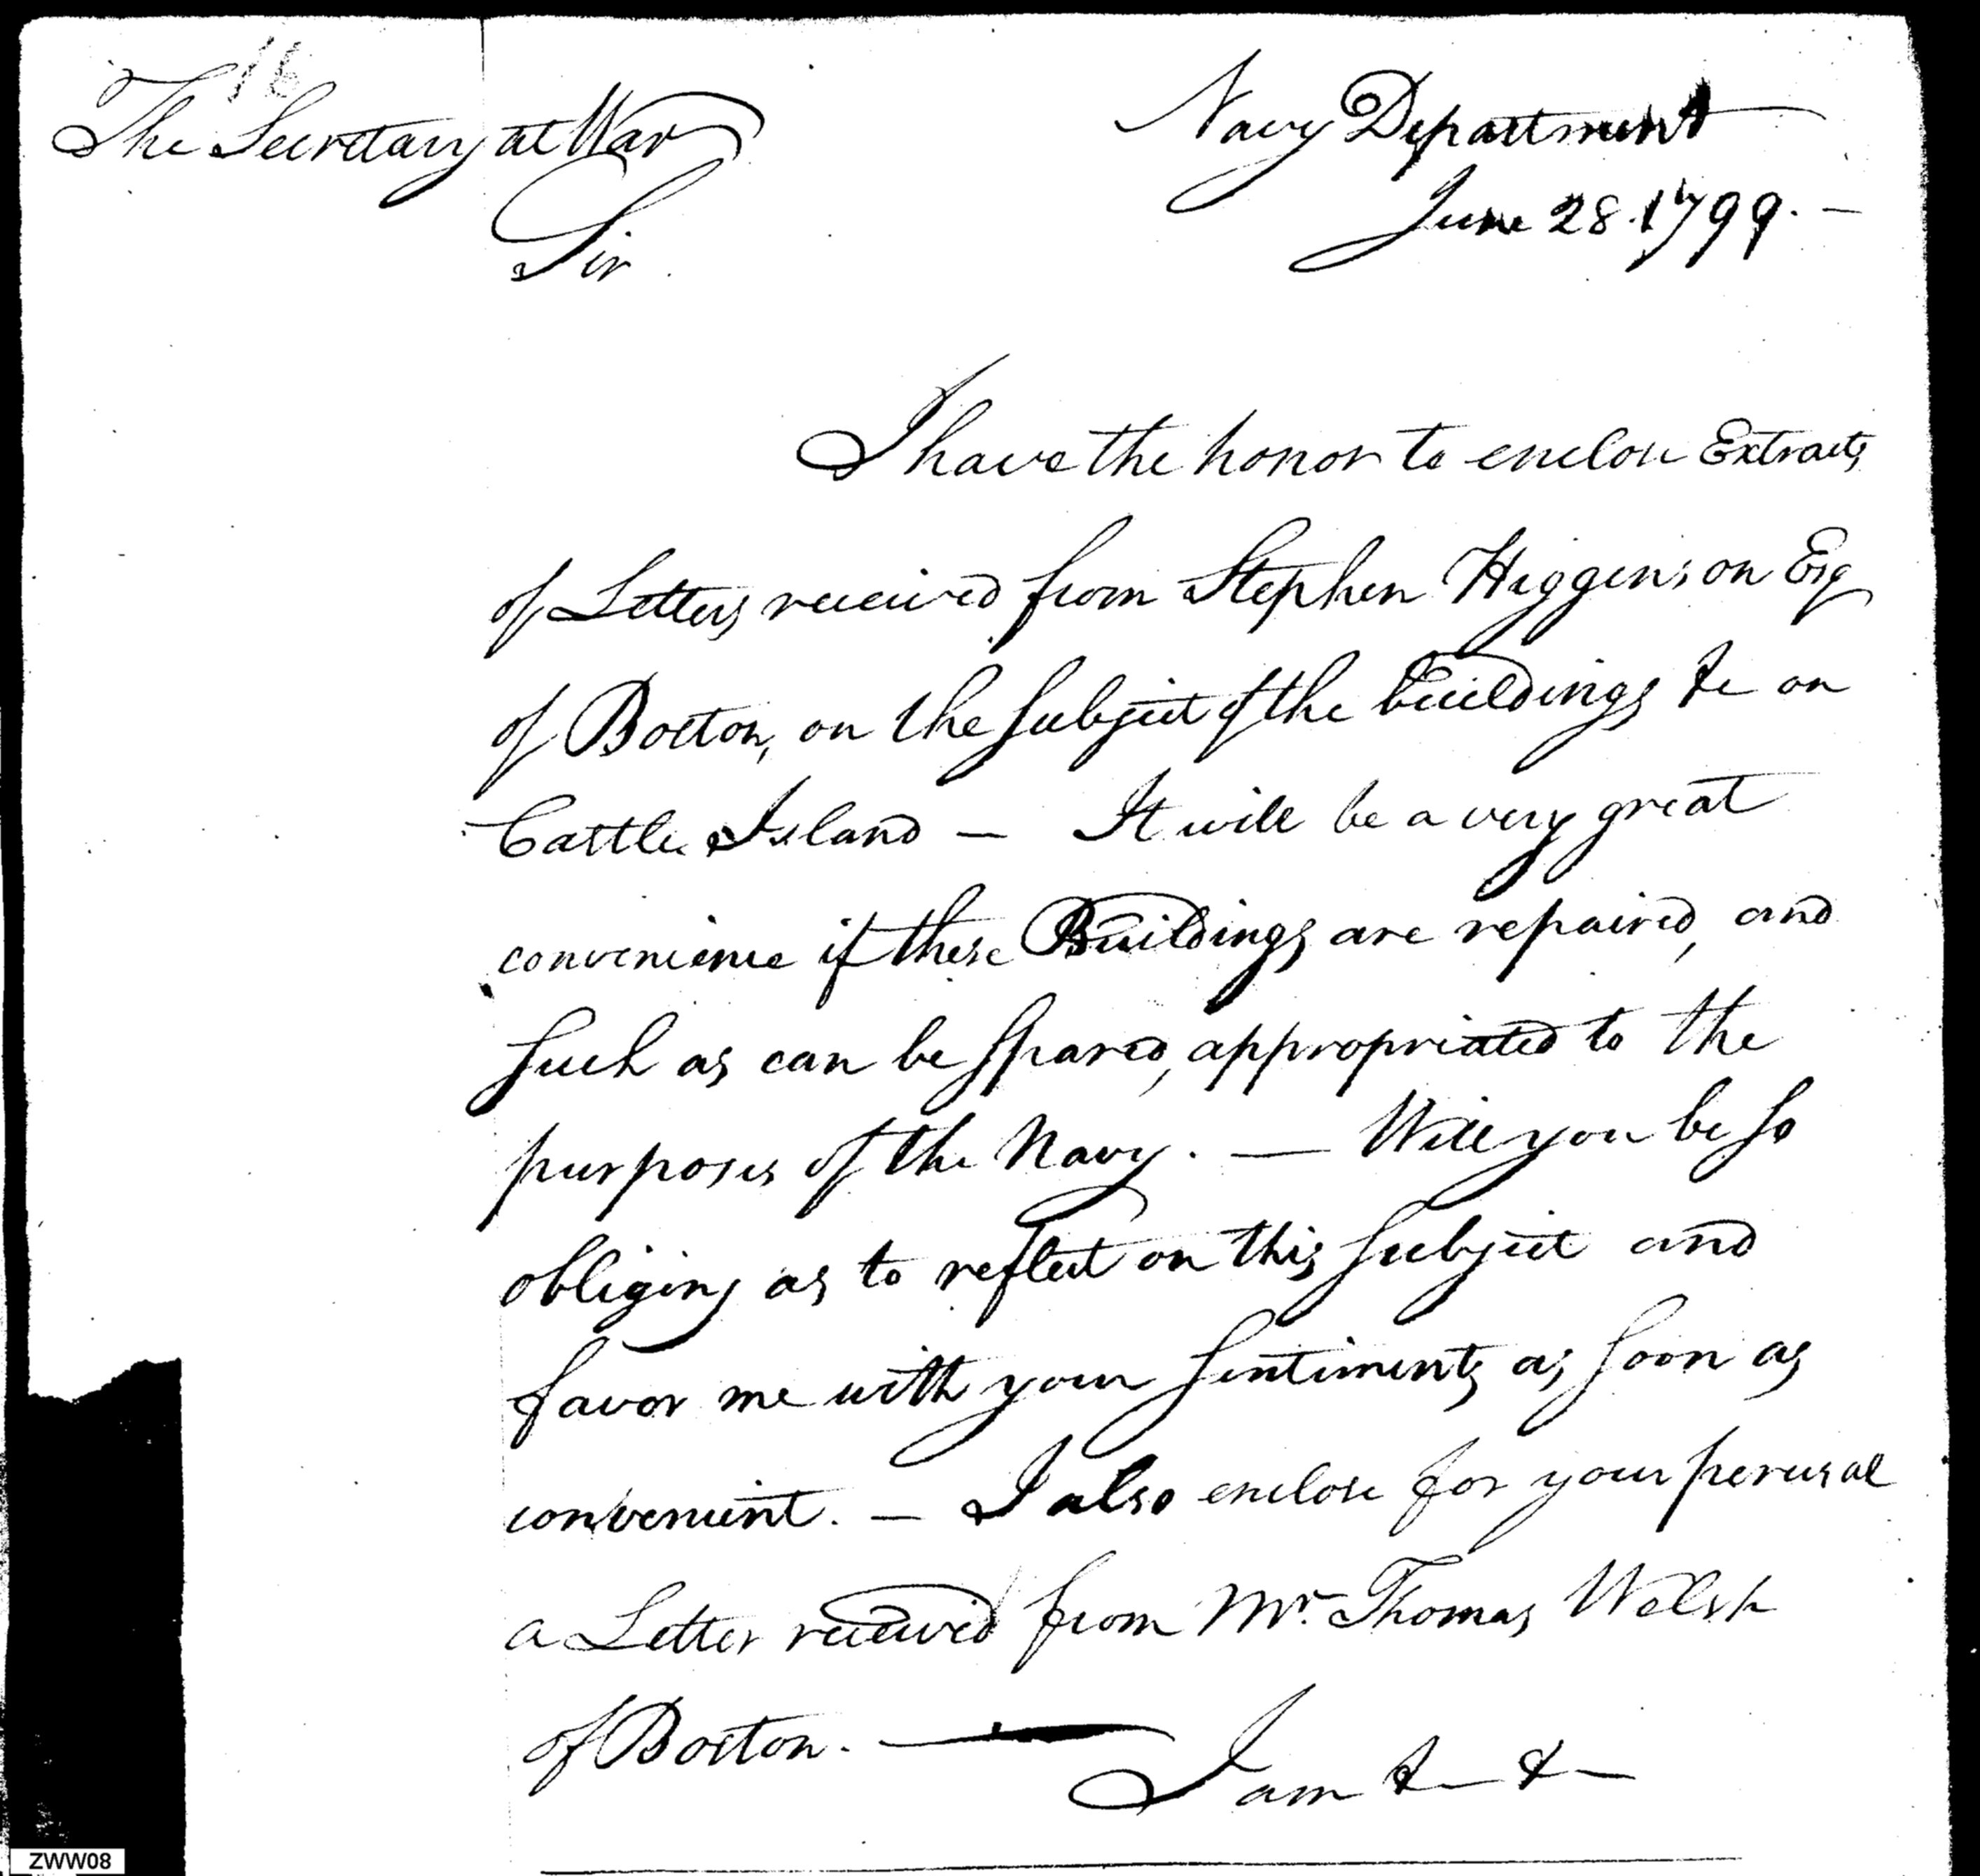 16
The Secretary at War
Navy Department
June 28. 1799. —
Sir
I have the honor to enclose Extracts
of Letters received from Stephen Higginson Esq
of Boston, on the subject of the buildings &c on
Castle Island — It will be a very great
convenience if these Buildings are repaired, and
such as can be spared, appropriated to the
purposes of the Navy. — Will you be so
obliging as to reflect on this subject and
favor me with your sentiments as soon as
convenient. — I also enclose for your perusal
a Letter received from Mr. Thomas Welsh
of Boston. —
I am &— &—
ZWW08